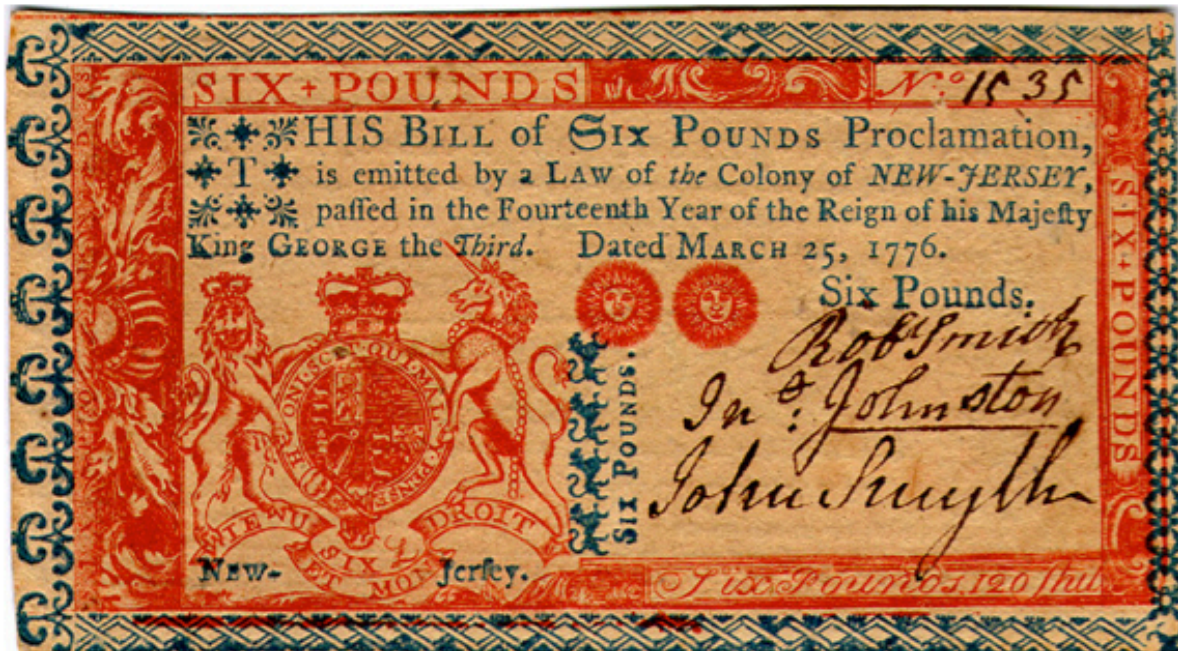 SIX + POUNDS
No. 1535
THIS BILL of SIX POUNDS Proclamation,
is emitted by a LAW of the Colony of NEW-JERSEY,
paſſed in the Fourteenth Year of the Reign of his Majeſty
King GEORGE the Third. Dated MARCH 25, 1776.
Six Pounds.
Robt Smith
Jno: Johnston
John Smyth
SIX POUNDS.
HONI·SOIT·QUI·MAL·Y·PENSE
DIEU ET MON DROIT
SIX £
NEW-Jerſey.
Six Pounds, 120 ſhil
SIX+POUNDS